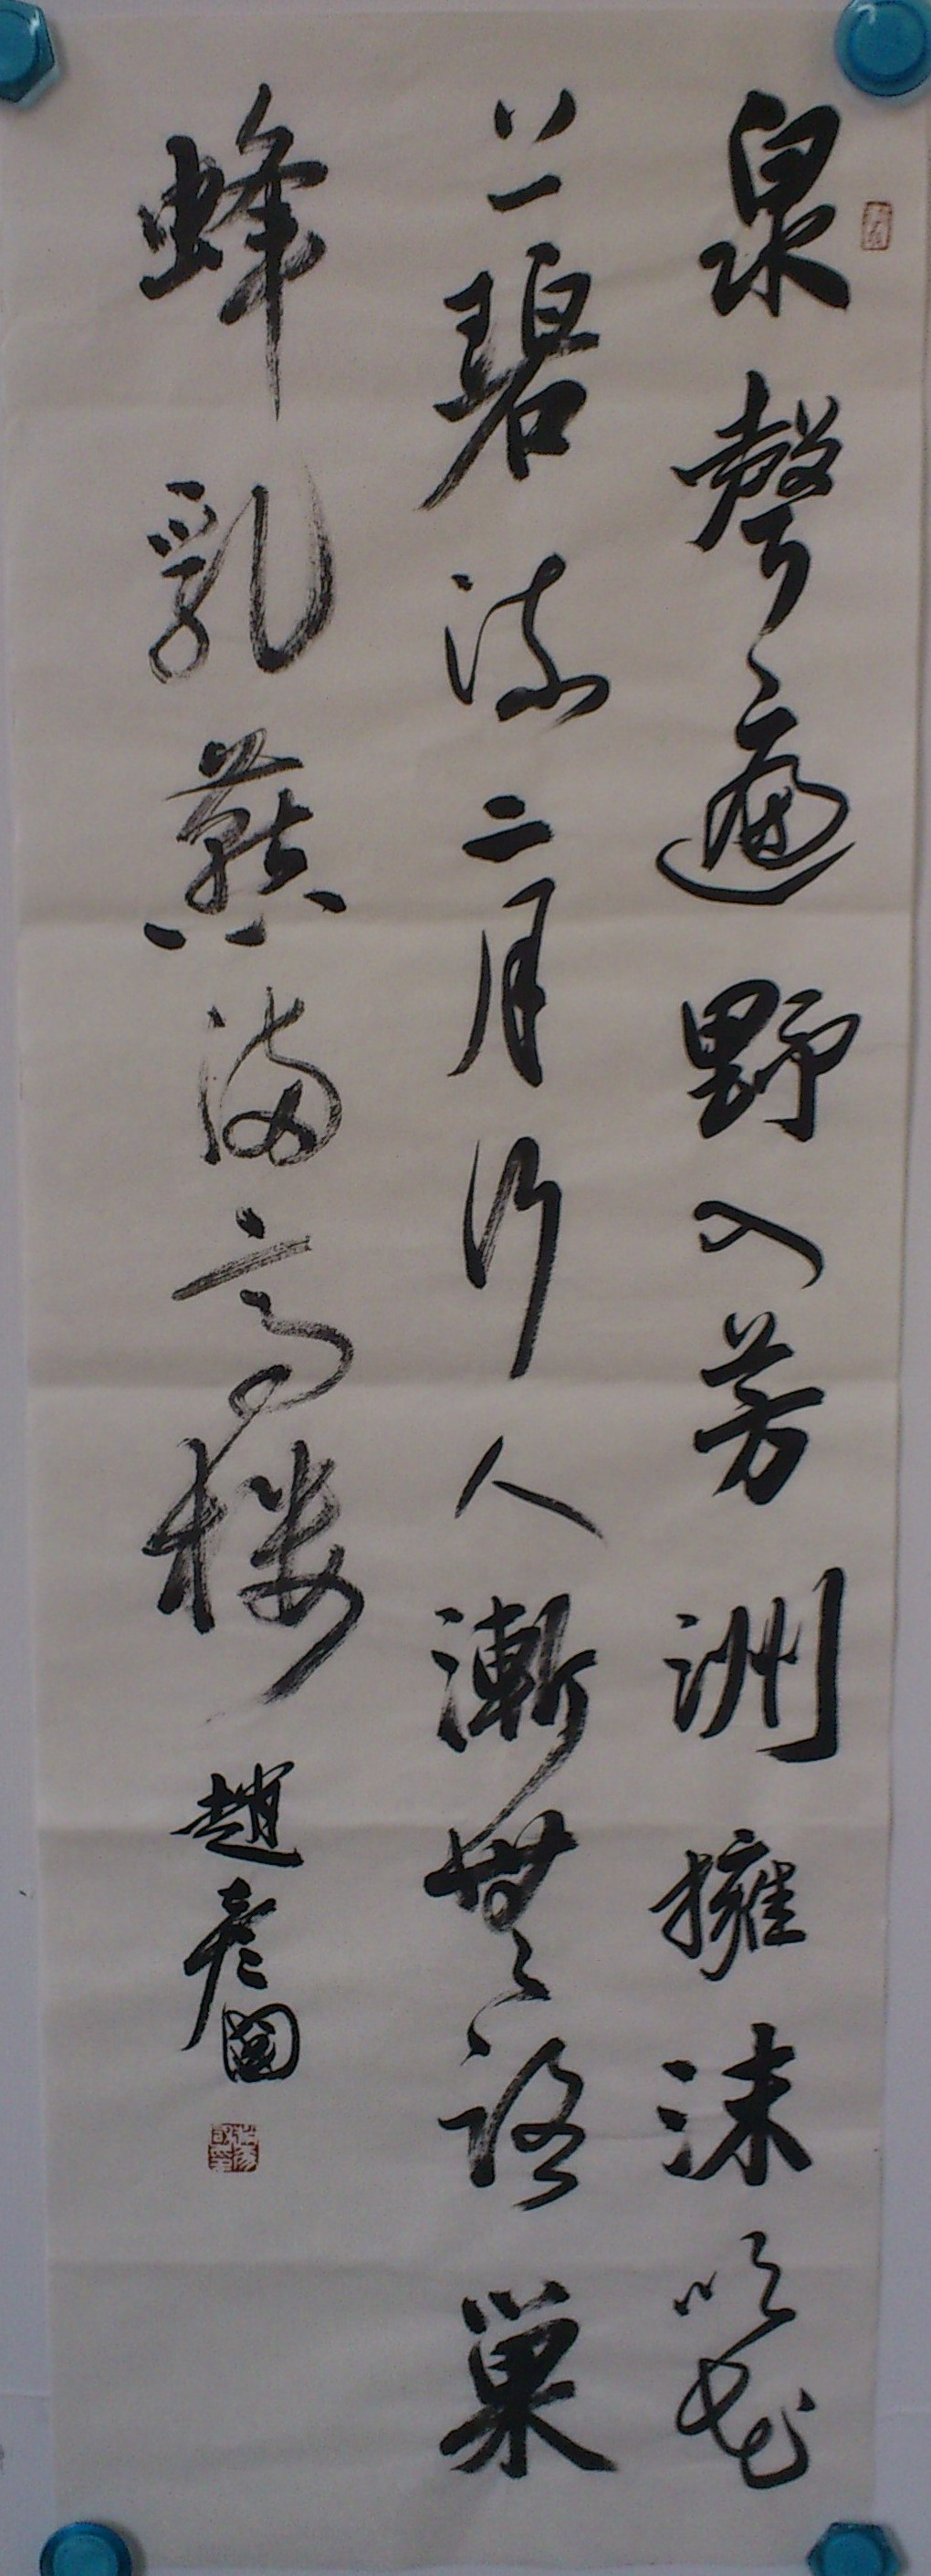 泉聲遍野入芳洲擁沫吹花
草碧流二月行人漸無路巢
蜂乳燕滿高樓趙彥國